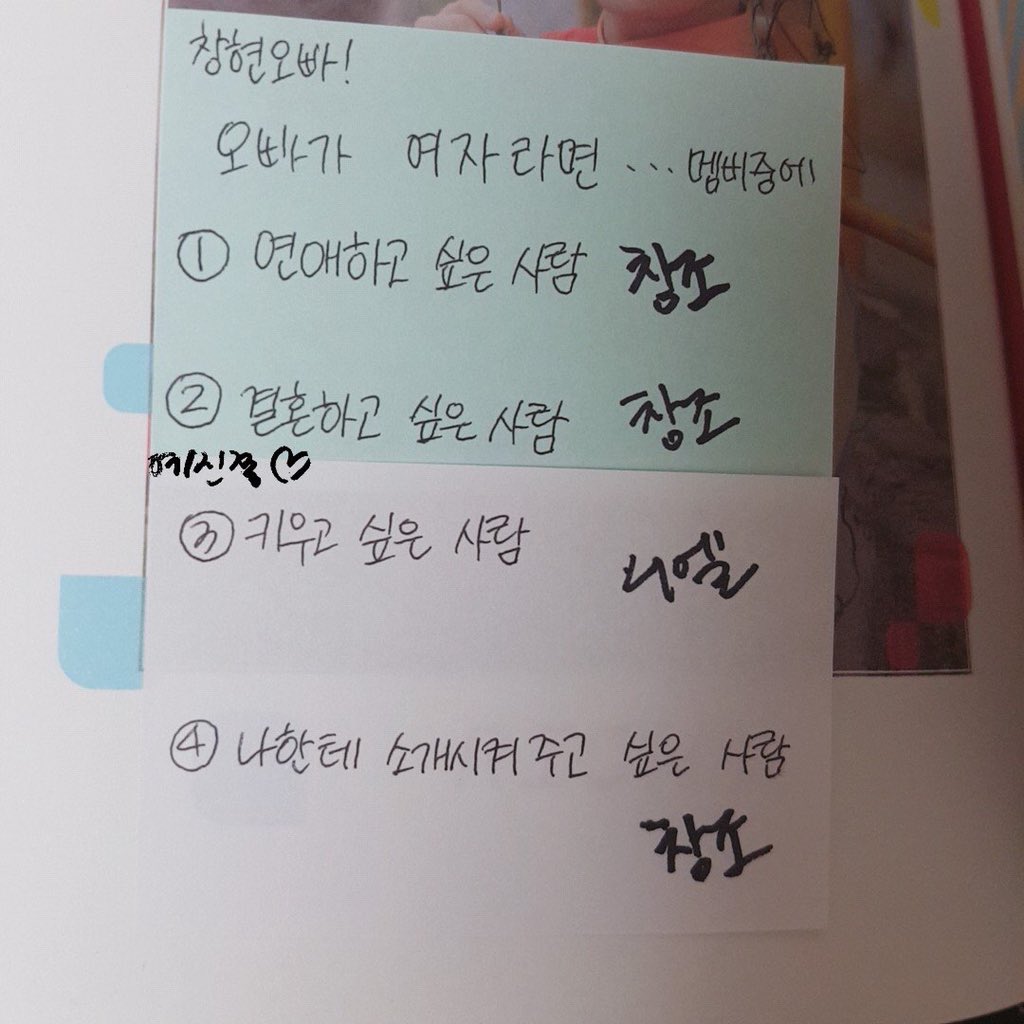 창현오빠!
오빠가 여자라면 ... 멤버중에
① 연애하고 싶은 사람 창조
② 결혼하고 싶은 사람 창조
③ 키우고 싶은 사람 니엘
④ 나한테 소개시켜주고 싶은 사람
창조